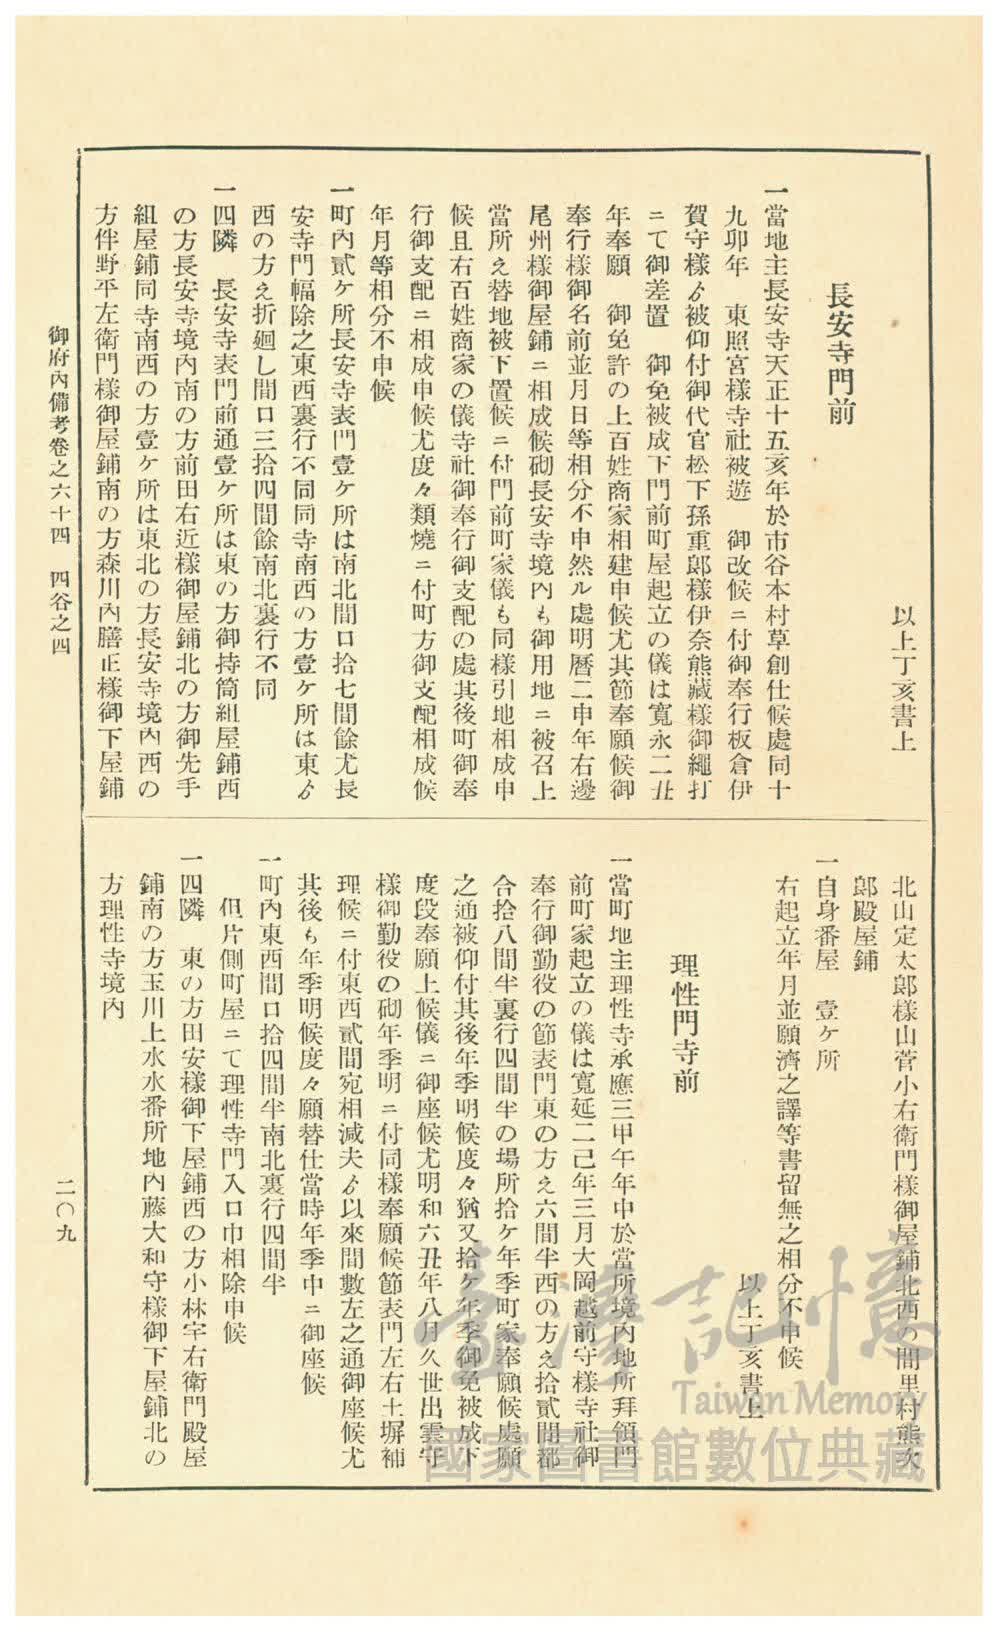 以上丁亥書上
長安寺門前
一當地主長安寺天正十五亥年於市谷本村草創仕候處同十
九卯年　東照宮樣寺社被遊　御改候ニ付御奉行板倉伊
賀守樣ゟ被仰付御代官松下孫重郞樣伊奈熊藏樣御繩打
ニて御差置　御免被成下門前町屋起立の儀は寬永二丑
年奉願　御免許の上百姓商家相建申候尤其節奉願候御
奉行樣御名前並月日等相分不申然ル處明曆二申年右邊
尾州樣御屋鋪ニ相成候砌長安寺境內も御用地ニ被召上
當所え替地被下置候ニ付門前町家儀も同樣引地相成申
候且右百姓商家の儀寺社御奉行御支配の處其後町御奉
行御支配ニ相成申候尤度々類燒ニ付町方御支配相成候
年月等相分不申候
一町內貳ケ所長安寺表門壹ケ所は南北間口拾七間餘尤長
安寺門幅除之東西裏行不同同寺南西の方壹ケ所は東ゟ
西の方え折廻し間口三拾四間餘南北裏行不同
一四隣　長安寺表門前通壹ケ所は東の方御持筒組屋鋪西
の方長安寺境內南の方前田右近樣御屋鋪北の方御先手
組屋鋪同寺南西の方壹ケ所は東北の方長安寺境內西の
方伴野平左衞門樣御屋鋪南の方森川內膳正樣御下屋鋪
北山定太郞樣山菅小右衞門樣御屋鋪北西の間里村熊次
郞殿屋鋪
一自身番屋　壹ケ所
右起立年月並願濟之譯等書留無之相分不申候
以上丁亥書上
理性門寺前
一當町地主理性寺承應三甲午年中於當所境內地所拜領門
前町家起立の儀は寬延二己年三月大岡越前守樣寺社御
奉行御勤役の節表門東の方え六間半西の方え拾貳間都
合拾八間半裏行四間半の場所拾ケ年季町家奉願候處願
之通被仰付其後年季明候度々猶又拾ケ年季御免被成下
度段奉願上候儀ニ御座候尤明和六丑年八月久世出雲守
樣御勤役の砌年季明ニ付同樣奉願候節表門左右土塀補
理候ニ付東西貳間宛相減夫ゟ以來間數左之通御座候尤
其後も年季明候度々願替仕當時年季中ニ御座候
一町內東西間口拾四間半南北裏行四間半
但片側町屋ニて理性寺門入口巾相除申候
一四隣　東の方田安樣御下屋鋪西の方小林宇右衞門殿屋
鋪南の方玉川上水水番所地內藤大和守樣御下屋鋪北の
方理性寺境內
御府內備考卷之六十四　四谷之四
二〇九
臺灣記憶
Taiwan Memory
國家圖書館數位典藏